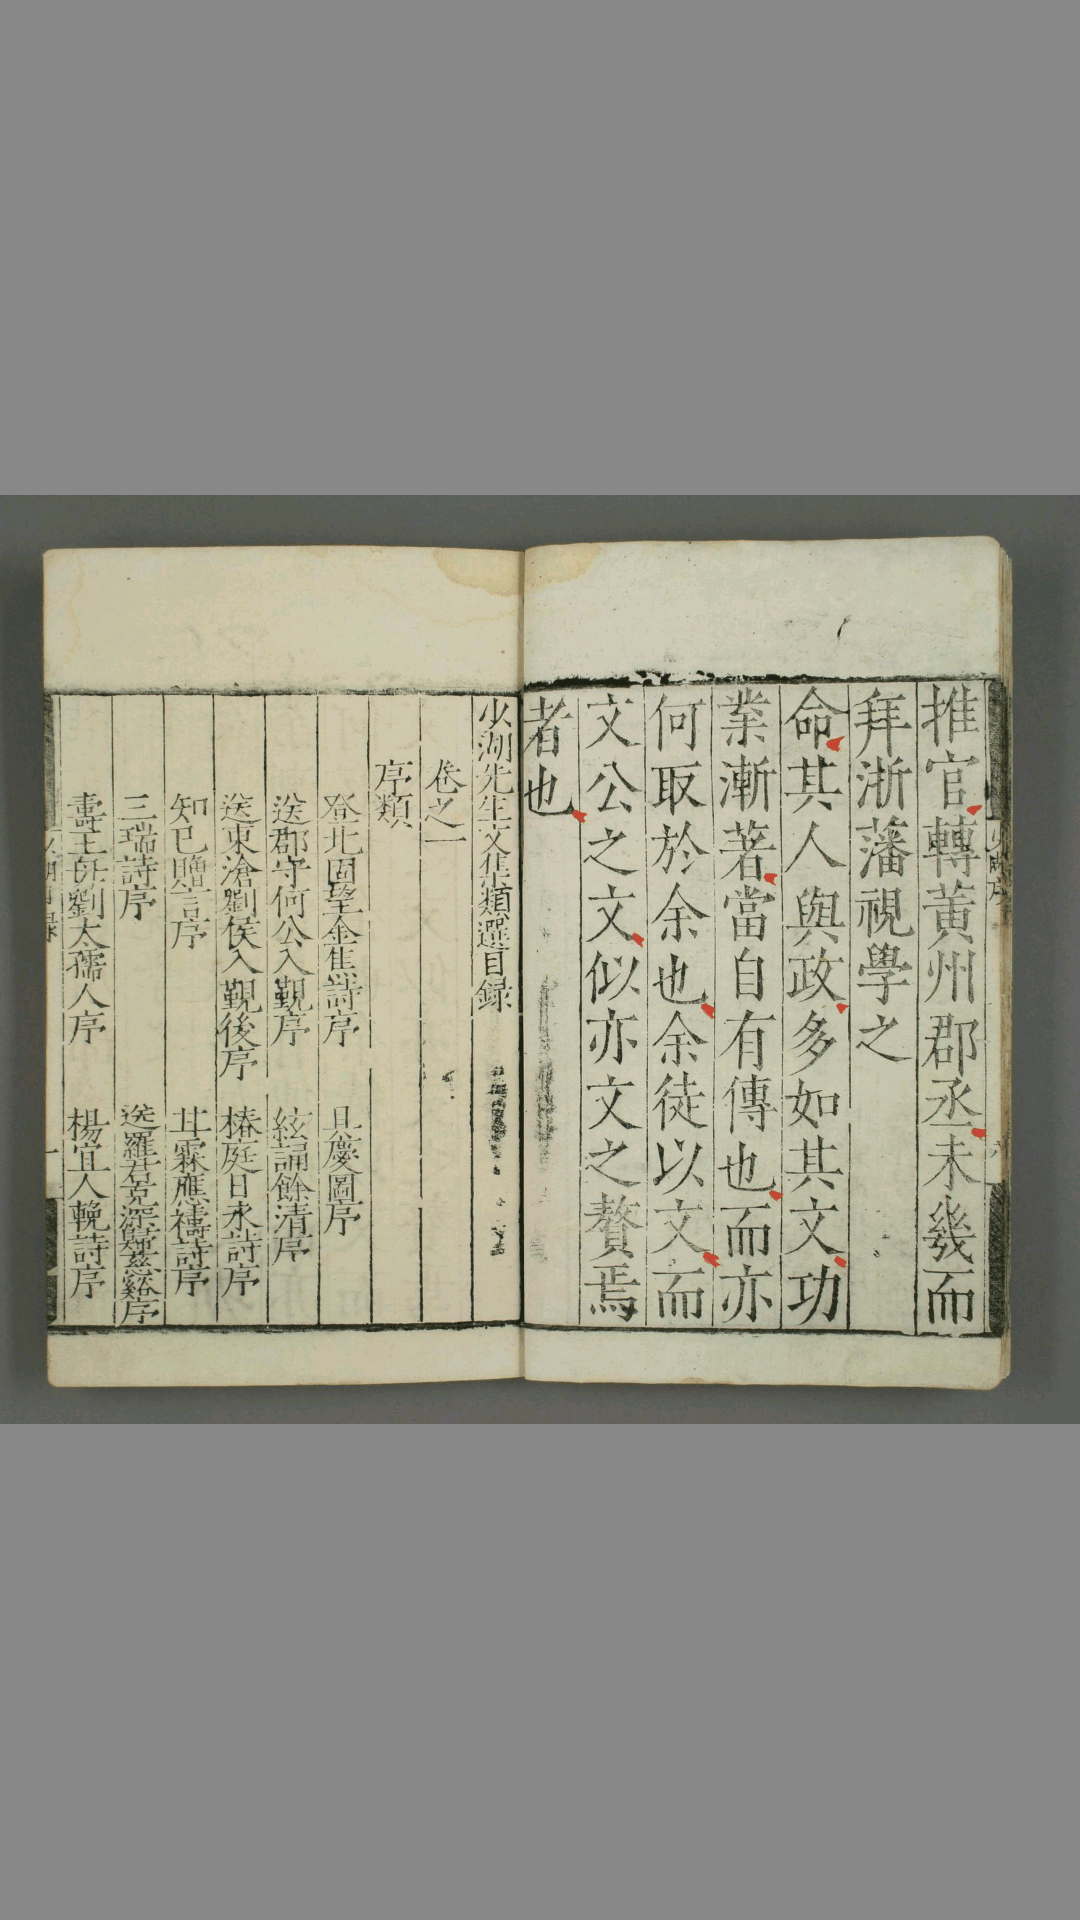 推官轉黃州郡丞未幾而
拜浙藩視學之
命其人與政多如其文功
業漸著當自有傳也而亦
何取於余也余徒以文而
文公之文似亦文之贅焉
者也
少湖先生文集類選目録
卷之一
序類
登北固望金焦詩序 具慶圖序
送郡守何公入覲序 絃誦餘清序
送東滄劉侯入覲後序 椿庭日永詩序
知已贈言序 甘霖應禱詩序
三瑞詩序 送羅君克深歸慈谿序
壽王母劉太孺人序 楊宜人輓詩序